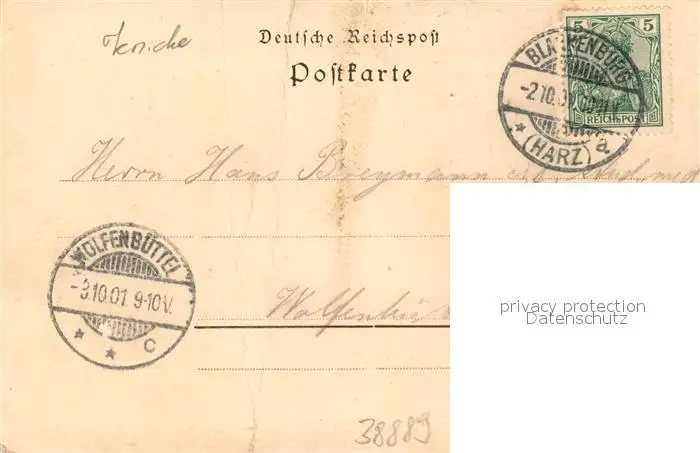 Deutsche Reichspost
Postkarte
5 5
REICHSPOST
BLANKENBURG
-2.10.01
(HARZ) a
Herrn Hans Breymann
WOLFENBÜTTEL
-3.10.01. 9-10V.
* * C
Wolfenbüt
privacy protection
Datenschutz
38889